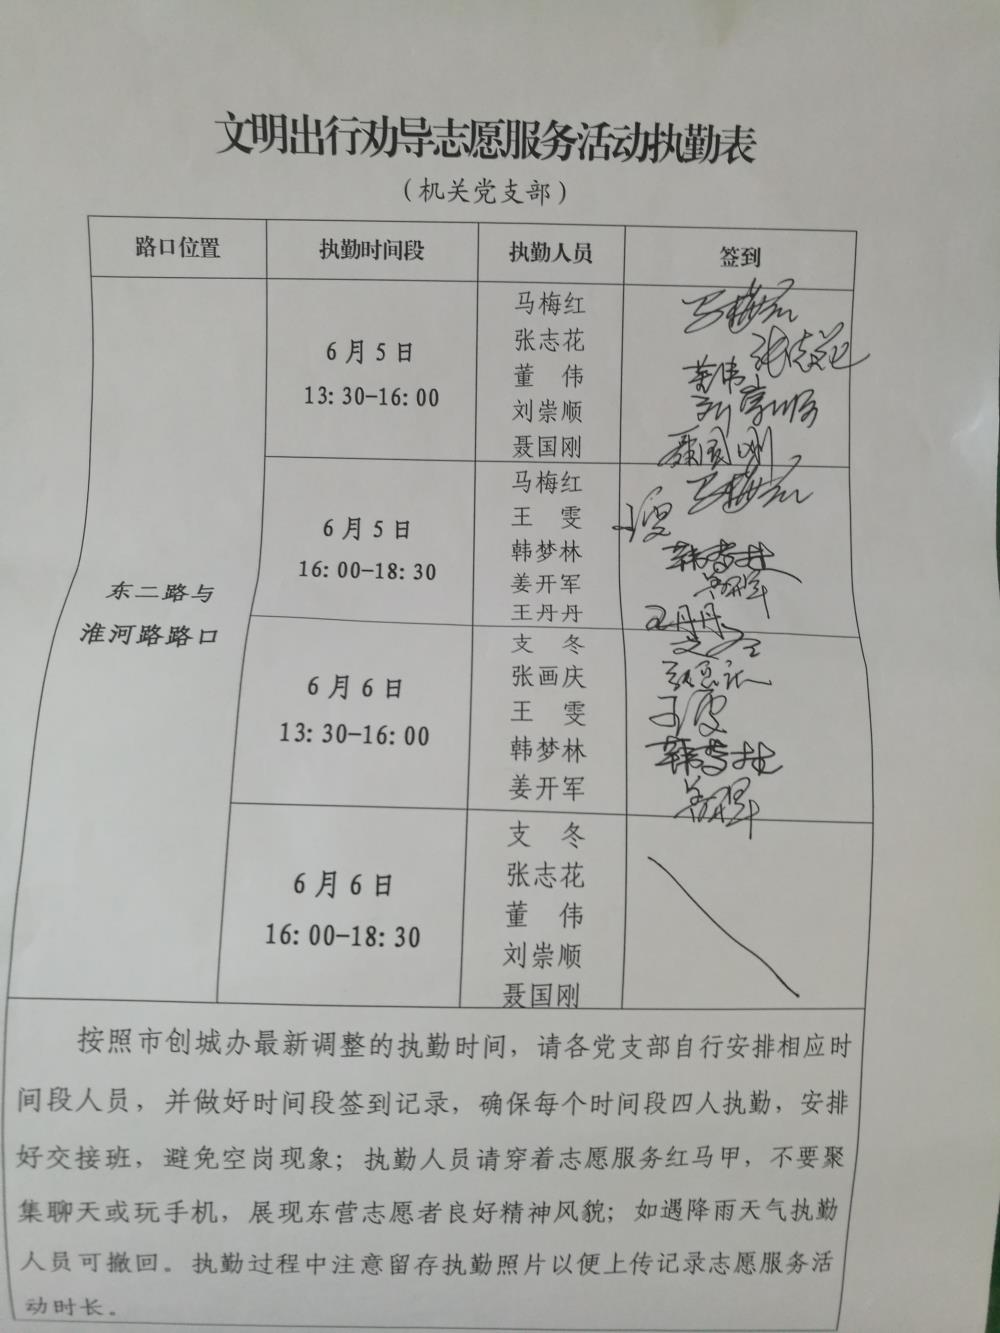 文明出行劝导志愿服务活动执勤表
（机关党支部）
路口位置 执勤时间段 执勤人员 签到
东二路与
淮河路路口
6月5日
13:30-16:00
马梅红 马梅红
张志花 张志花
董 伟 董伟
刘崇顺 刘崇顺
聂国刚 聂国刚
6月5日
16:00-18:30
马梅红 马梅红
王 雯
韩梦林 韩梦林
姜开军 姜开军
王丹丹 王丹丹
6月6日
13:30-16:00
支 冬 支冬
张画庆
王 雯
韩梦林 韩梦林
姜开军 姜开军
6月6日
16:00-18:30
支 冬
张志花
董 伟
刘崇顺
聂国刚
按照市创城办最新调整的执勤时间，请各党支部自行安排相应时
间段人员，并做好时间段签到记录，确保每个时间段四人执勤，安排
好交接班，避免空岗现象；执勤人员请穿着志愿服务红马甲，不要聚
集聊天或玩手机，展现东营志愿者良好精神风貌；如遇降雨天气执勤
人员可撤回。执勤过程中注意留存执勤照片以便上传记录志愿服务活
动时长。